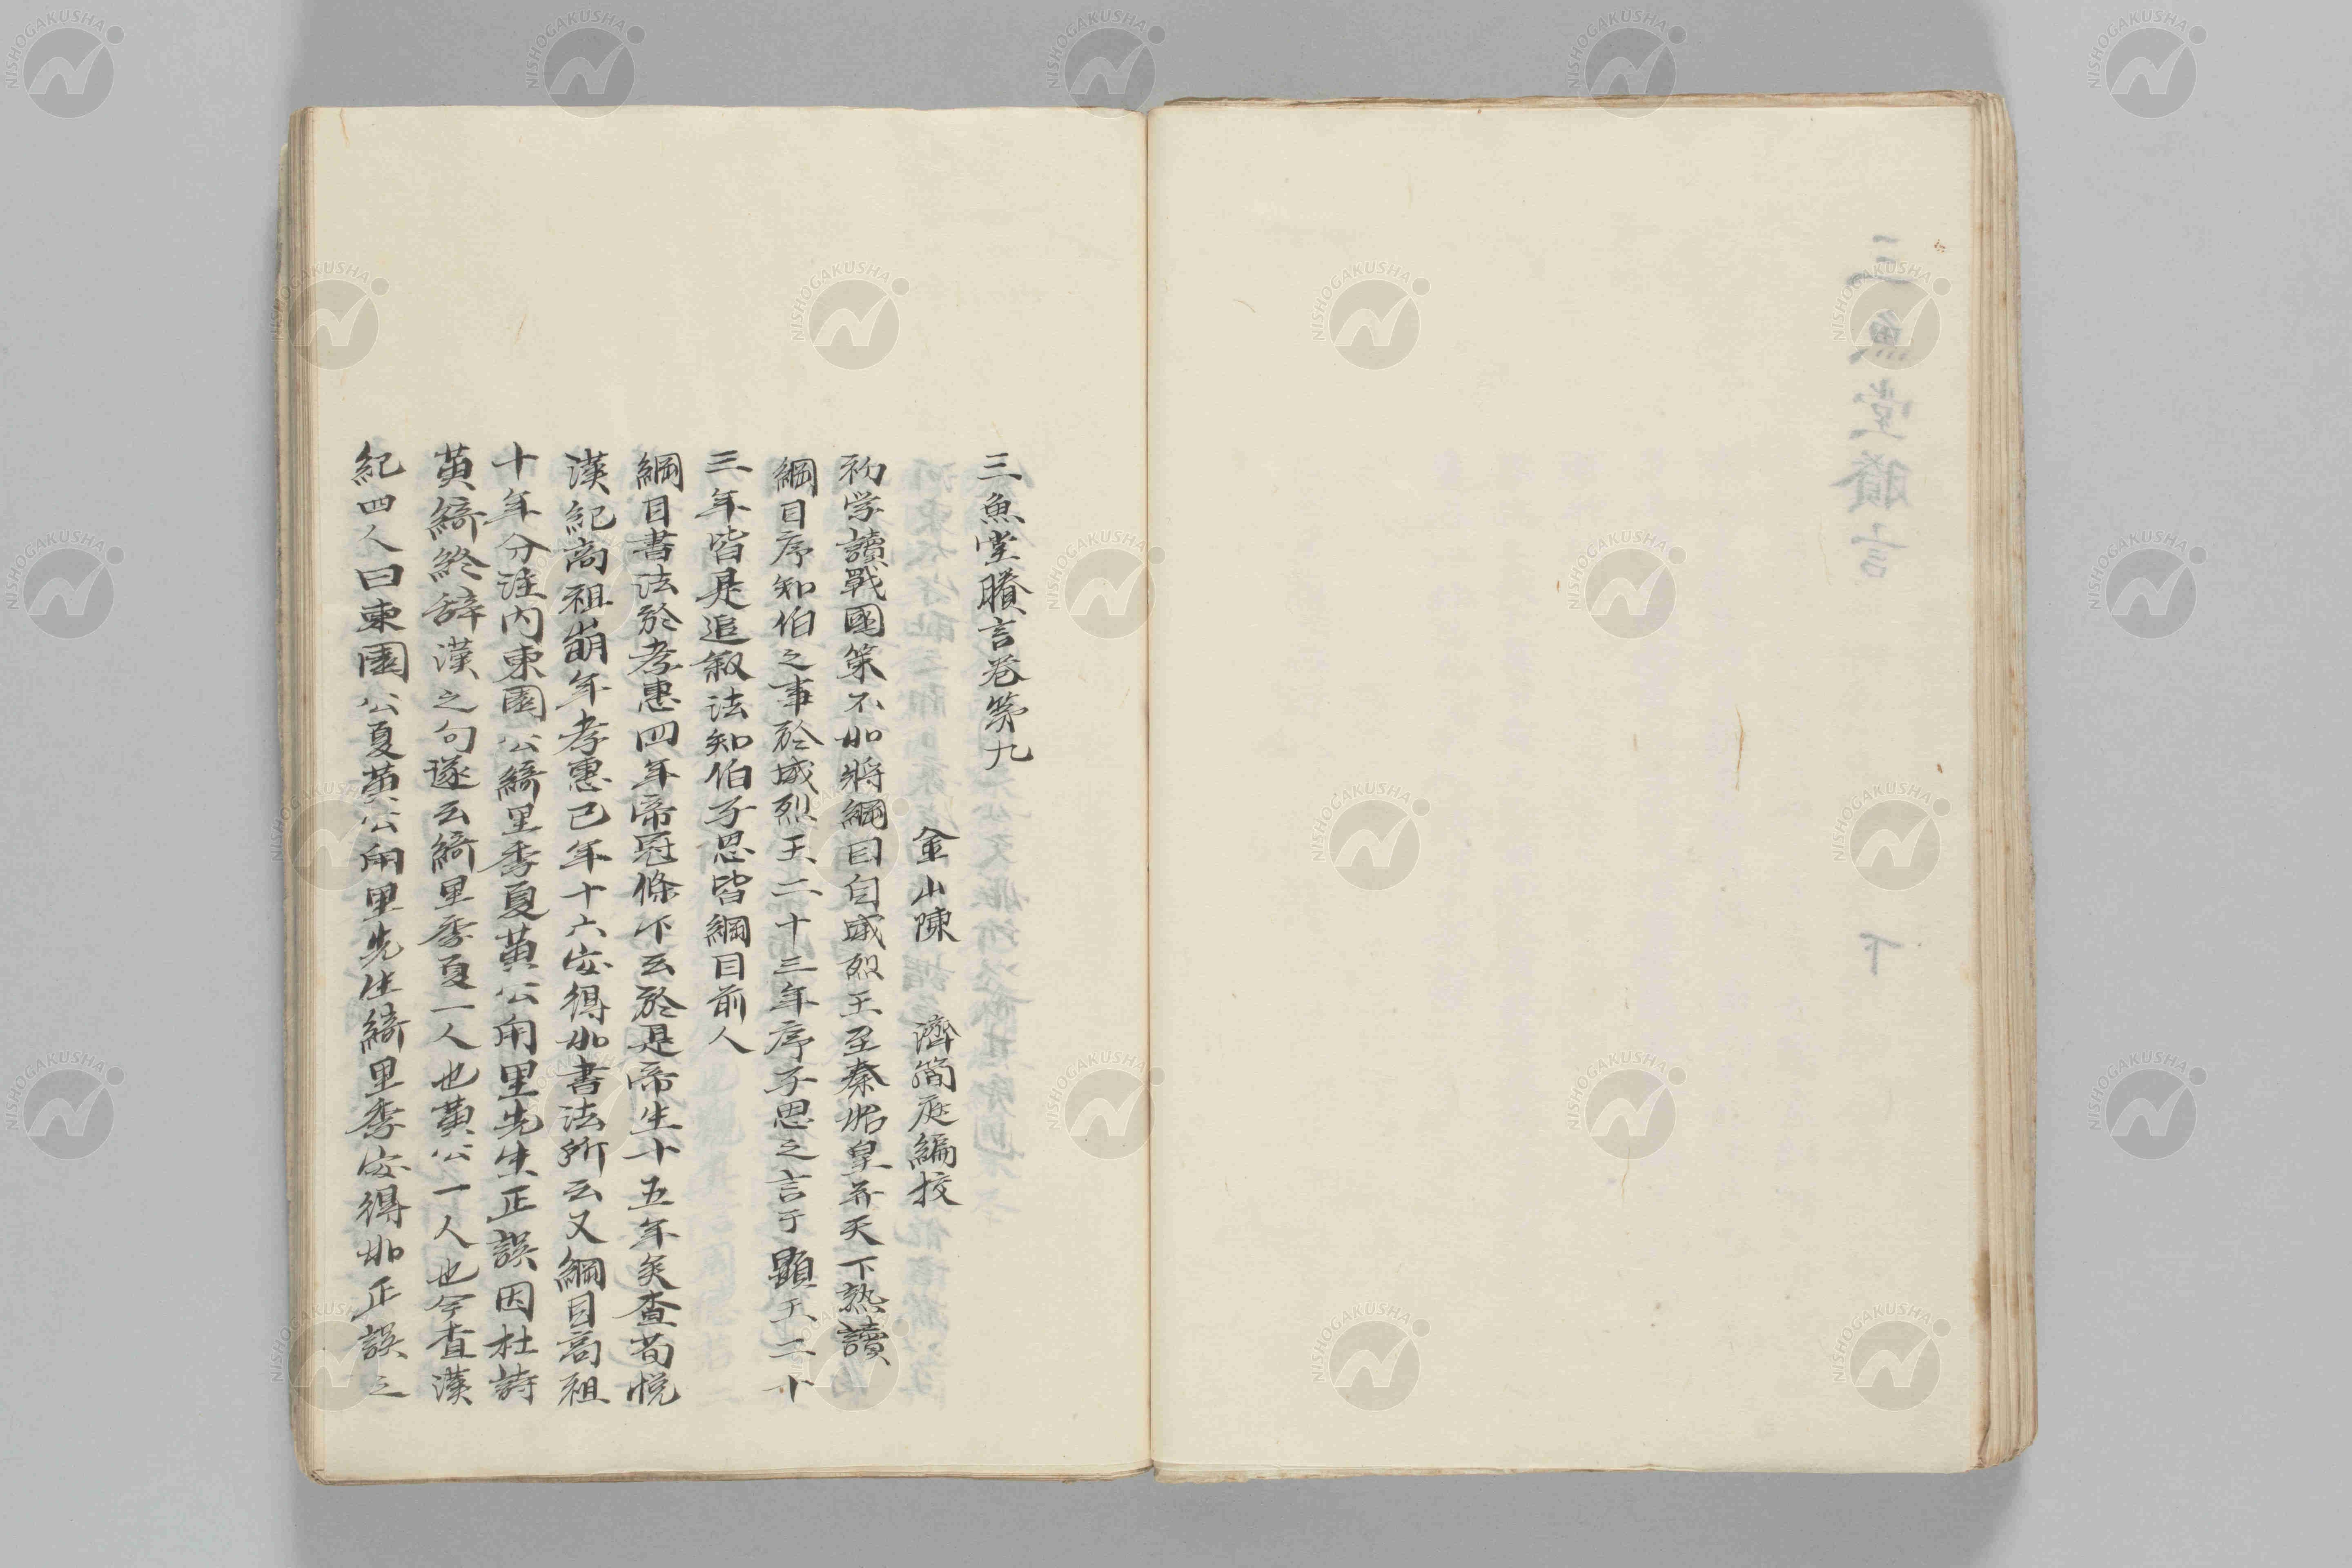 三魚堂賸言
下
三魚堂賸言卷第九
金山陳　濟簡庭編挍
初学讀戰國策不如將綱目自威烈王至秦始皇并天下熟讀
綱目序知伯之事於威烈王二十三年序子思之言于顕王二十
三年皆是追叙法知伯子思皆綱目前人
綱目書法於孝惠四年帝冠條下云於是帝生十五年矣查荀悦
漢紀高祖崩年孝惠已年十六安得如書法所云又綱目高祖
十年分注内東園公綺里季夏黄公甪里先生正誤因杜詩
黄綺終辞漢之句遂云綺里季夏一人也黄公一人也今查漢
紀四人曰東園公夏黄公甪里先生綺里季安得如正誤之
NISHOGAKUSHA